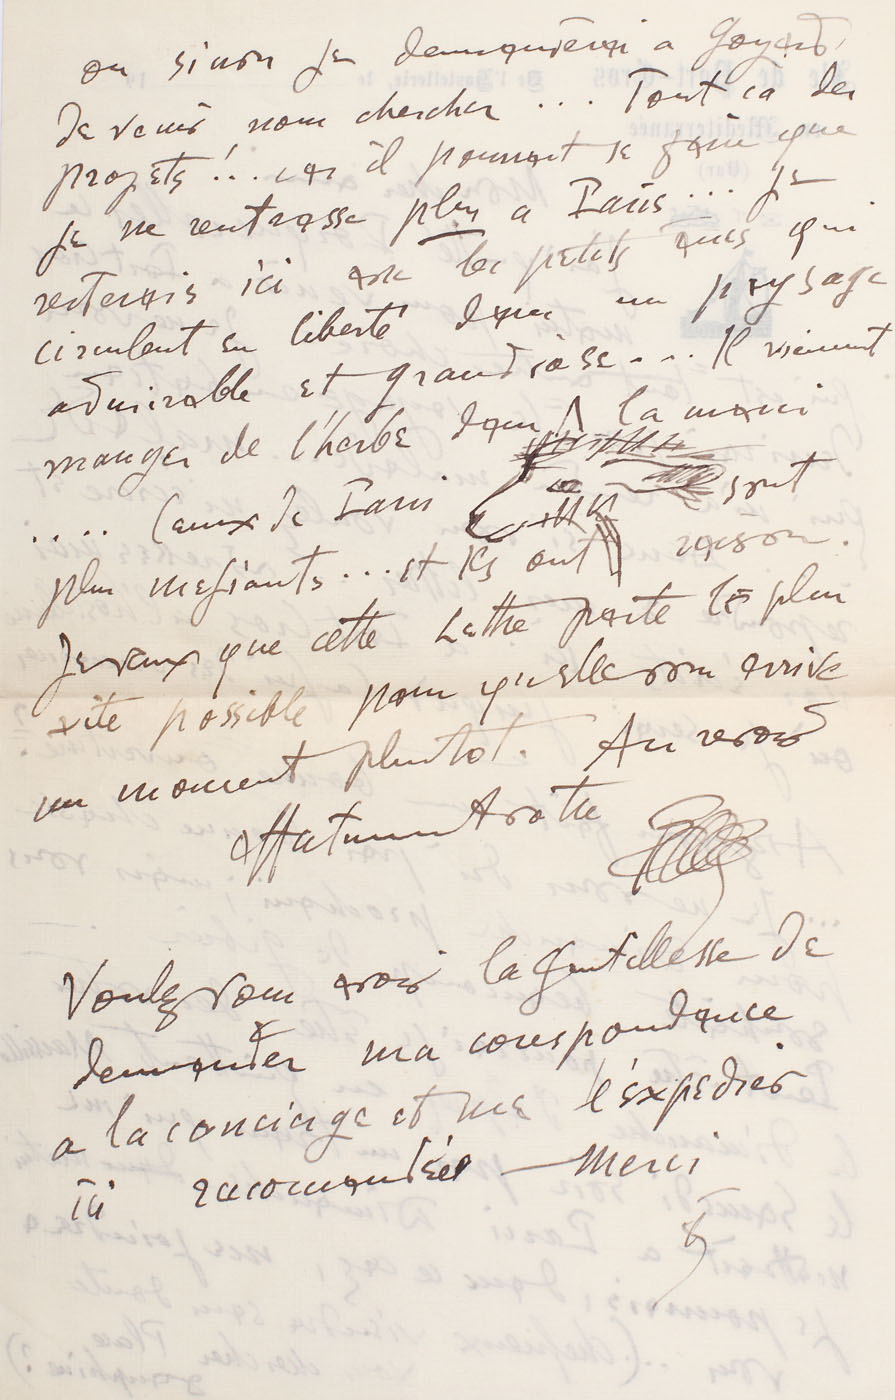 ou sinon je demanderai a Goyard
de venir nous chercher ... Tout ca des
projets !... car il pourrait se faire que
je ne rentrasse plus a Paris ... je
resterais ici avec les petits ânes qui
circulent en liberté dans un paysage
admirable et grandiose ... Il viennent
manger de l'herbe dans la main
..... Ceux de Paris sont
plus mefiants ... et ils ont raison.
Je veux que cette Lettre parte le plus
vite possible pour qu'elle vous arrive
un moment plutot. Au revoir
Affatueusement votre
Voulez vous avoir la gentillesse de
demander ma corespondance
a la concierge et me l'éxpedier
ici racomandée — Merci